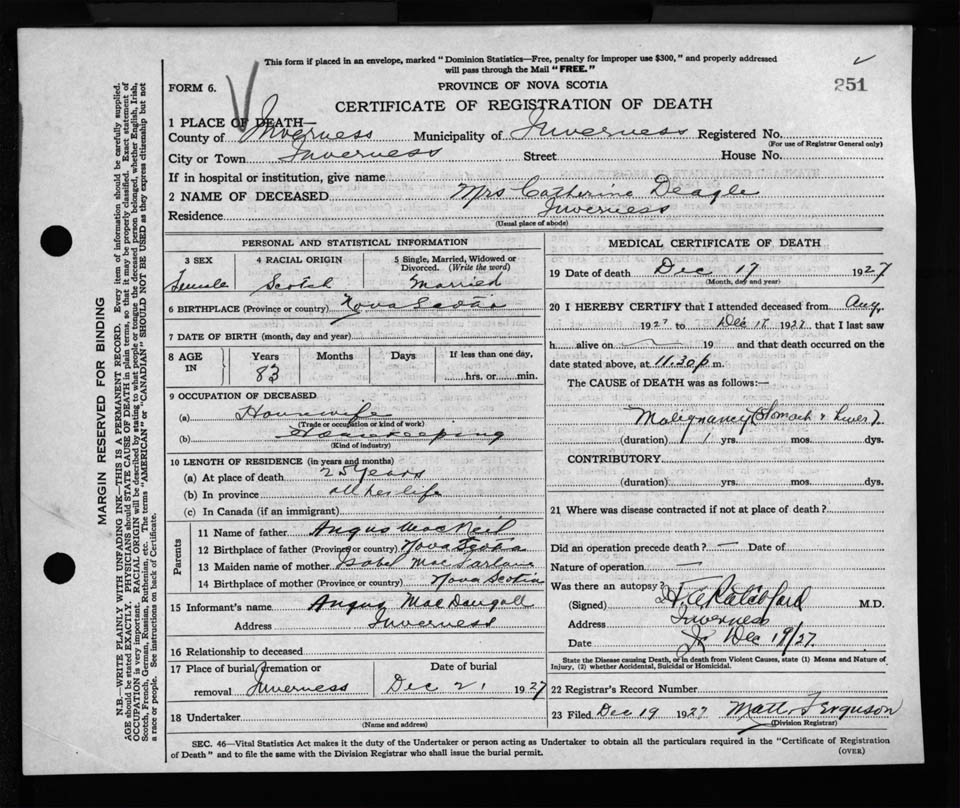 This form if placed in an envelope, marked "Dominion Statistics—Free, penalty for improper use $300," and properly addressed
will pass through the Mail "FREE."
FORM 6.
PROVINCE OF NOVA SCOTIA
251
CERTIFICATE OF REGISTRATION OF DEATH
1 PLACE OF DEATH—
County of Inverness Municipality of Inverness Registered No.
(For use of Registrar General only)
City or Town Inverness Street House No.
If in hospital or institution, give name
2 NAME OF DECEASED Mrs Catherine Deagle
Residence Inverness
(Usual place of abode)
PERSONAL AND STATISTICAL INFORMATION
3 SEX 4 RACIAL ORIGIN 5 Single, Married, Widowed or
Divorced. (Write the word)
Female Scotch Married
6 BIRTHPLACE (Province or country) Nova Scotia
7 DATE OF BIRTH (month, day and year)
8 AGE IN Years Months Days If less than one day,
83 hrs. or min.
9 OCCUPATION OF DECEASED
(a) Housewife
(Trade or occupation or kind of work)
(b) Housekeeping
(Kind of industry)
10 LENGTH OF RESIDENCE (in years and months)
(a) At place of death 25 years
(b) In province all her life
(c) In Canada (if an immigrant)
Parents
11 Name of father Angus MacNeil
12 Birthplace of father (Province or country) Nova Scotia
13 Maiden name of mother Isabel MacFarlane
14 Birthplace of mother (Province or country) Nova Scotia
15 Informant's name Angus MacDougall
Address Inverness
16 Relationship to deceased
17 Place of burial, cremation or Date of burial
removal Inverness Dec 21 1927
18 Undertaker
(Name and address)
MEDICAL CERTIFICATE OF DEATH
19 Date of death Dec 17 1927
(Month, day and year)
20 I HEREBY CERTIFY that I attended deceased from Aug.
1927 to Dec 17 1927, that I last saw
h alive on 19 and that death occurred on the
date stated above, at 11.30 p m.
The CAUSE of DEATH was as follows:—
Malignancy (Stomach & Liver)
(duration) 1 yrs. mos. dys.
CONTRIBUTORY
(duration) yrs. mos. dys.
21 Where was disease contracted if not at place of death?
Did an operation precede death? — Date of
Nature of operation —
Was there an autopsy?
(Signed) Ratchford M.D.
Address Inverness
Date Dec 19/27
State the Disease causing Death, or in death from Violent Causes, state (1) Means and Nature of
Injury, (2) whether Accidental, Suicidal or Homicidal.
22 Registrar's Record Number
23 Filed Dec 19 1927 Matt. Ferguson
(Division Registrar)
SEC. 46—Vital Statistics Act makes it the duty of the Undertaker or person acting as Undertaker to obtain all the particulars required in the "Certificate of Registration
of Death" and to file the same with the Division Registrar who shall issue the burial permit.
(OVER)
MARGIN RESERVED FOR BINDING
N.B.—WRITE PLAINLY WITH UNFADING INK—THIS IS A PERMANENT RECORD. Every item of information should be carefully supplied.
AGE should be stated EXACTLY. PHYSICIANS should STATE CAUSE OF DEATH in plain terms, so that it may be properly classified. Exact statement of
OCCUPATION is very important. RACIAL ORIGIN will be described by stating to what people or tongue the deceased person belonged, whether English, Irish,
Scotch, French, German, Russian, Ruthenian, etc. The terms "AMERICAN" or "CANADIAN" SHOULD NOT BE USED as they express citizenship but not
a race or people. See instructions on back of Certificate.